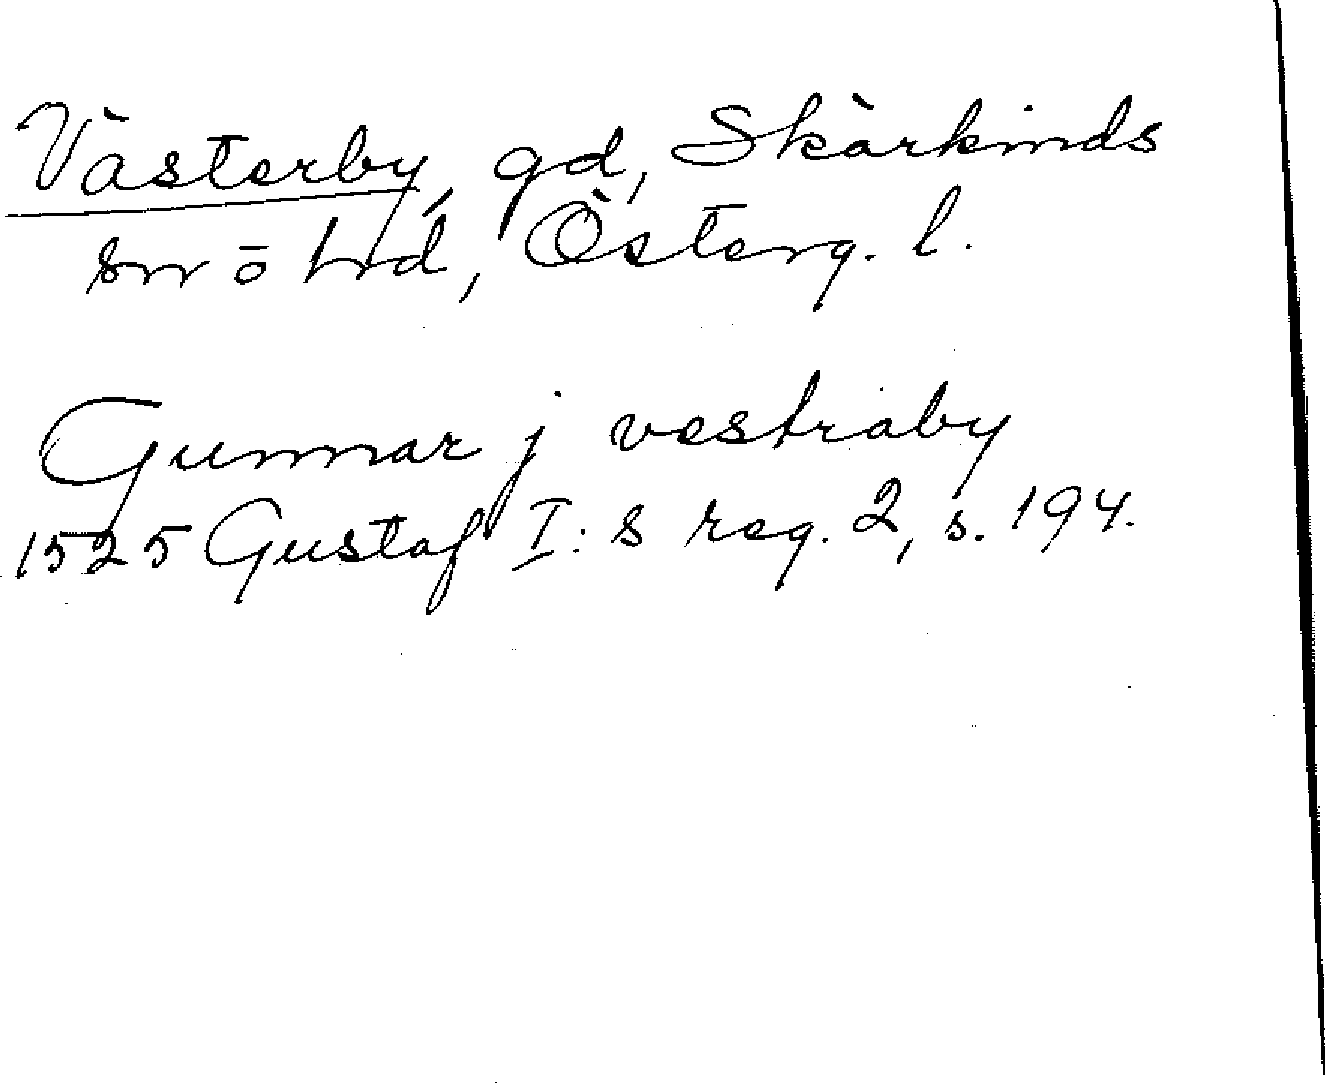 Västerby, gd, Skärkinds
sn o hd, Österg. l.
Gunnar j vestraby
1525 Gustaf I:s reg. 2, s. 194.